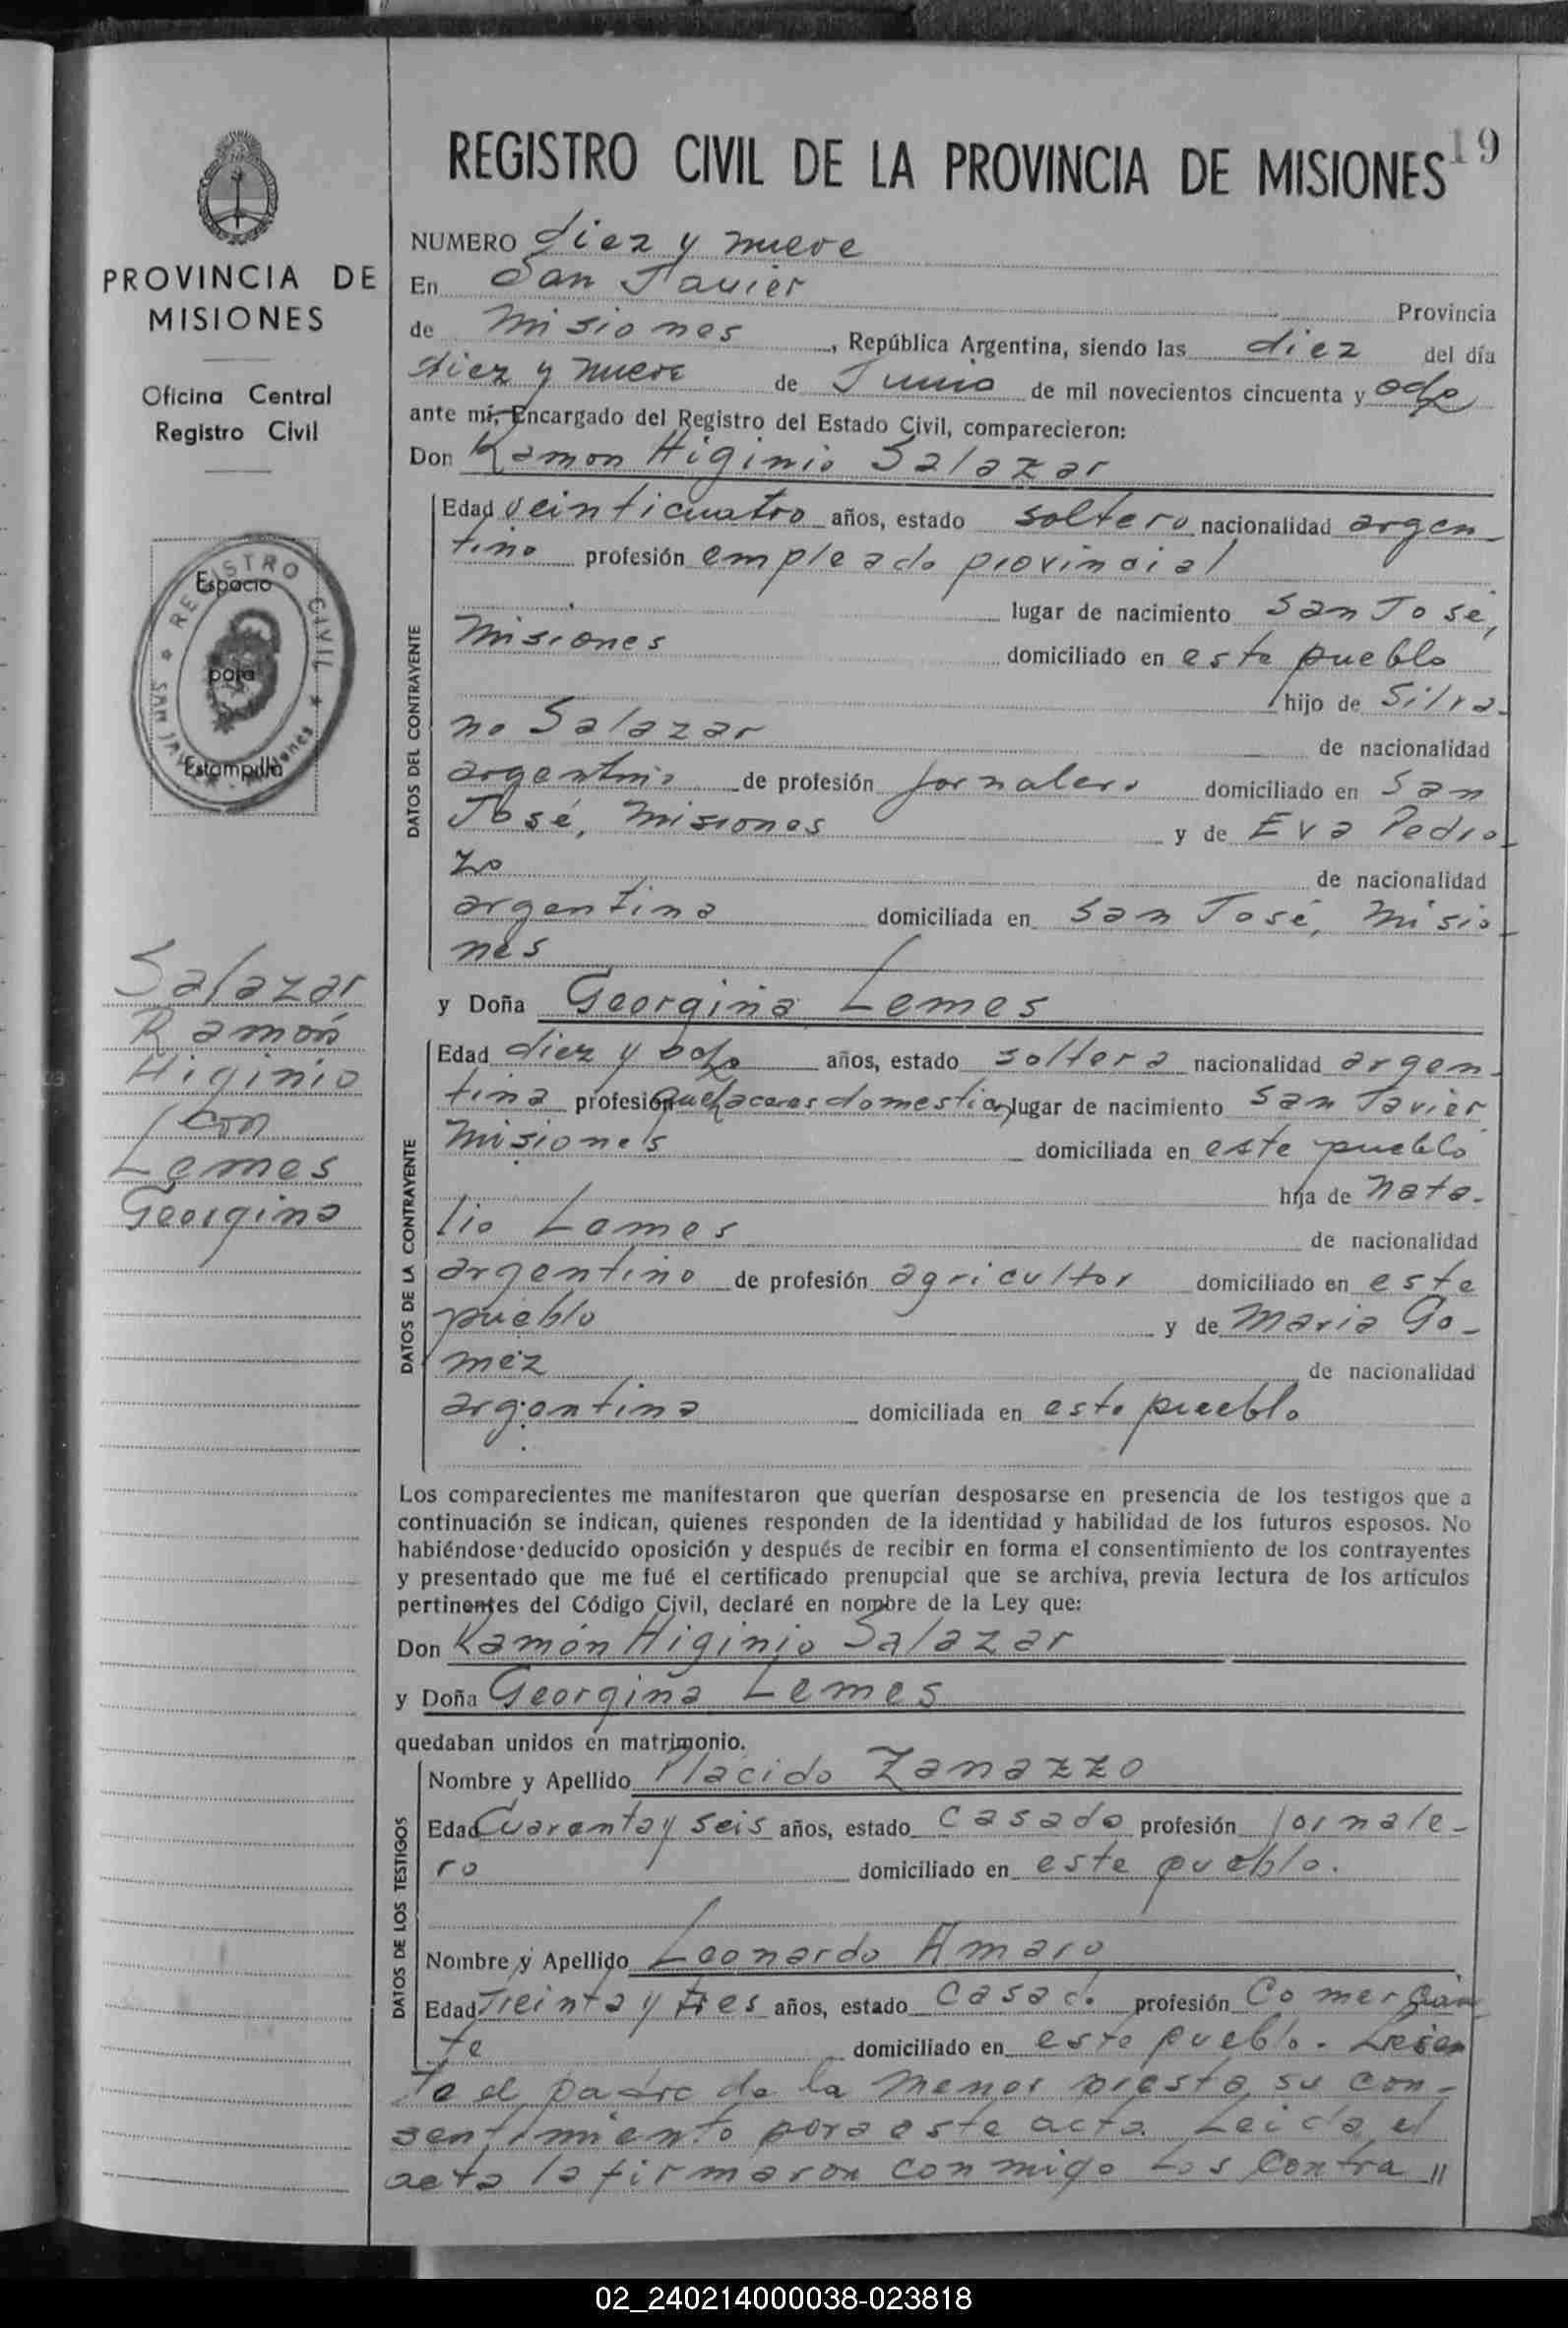 REGISTRO CIVIL DE LA PROVINCIA DE MISIONES 19
PROVINCIA DE
MISIONES
Oficina Central
Registro Civil
REGISTRO CIVIL
SAN JAVIER Misiones
Espacio
para
Estampilla
Salazar
Ramón
Higinio
con
Lemes
Georgina
NUMERO diez y nueve
En San Javier Provincia
de Misiones, República Argentina, siendo las diez del día
diez y nueve de Junio de mil novecientos cincuenta y ocho
ante mí, Encargado del Registro del Estado Civil, comparecieron:
Don Ramon Higinio Salazar
DATOS DEL CONTRAYENTE
Edad veinticuatro años, estado soltero nacionalidad argen-
tino profesión empleado provincial
lugar de nacimiento San José,
Misiones domiciliado en este pueblo
hijo de Silva-
no Salazar de nacionalidad
argentino de profesión jornalero domiciliado en San
José, Misiones y de Eva Pedro-
zo de nacionalidad
argentina domiciliada en San José, Misio-
nes
y Doña Georgina Lemes
DATOS DE LA CONTRAYENTE
Edad diez y ocho años, estado soltera nacionalidad argen-
tina profesión quehaceres domesticos lugar de nacimiento San Javier
Misiones domiciliada en este pueblo
hija de Nata-
lio Lemes de nacionalidad
argentino de profesión agricultor domiciliado en este
pueblo y de Maria Go-
mez de nacionalidad
argentina domiciliada en este pueblo
Los comparecientes me manifestaron que querían desposarse en presencia de los testigos que a
continuación se indican, quienes responden de la identidad y habilidad de los futuros esposos. No
habiéndose deducido oposición y después de recibir en forma el consentimiento de los contrayentes
y presentado que me fué el certificado prenupcial que se archiva, previa lectura de los artículos
pertinentes del Código Civil, declaré en nombre de la Ley que:
Don Ramón Higinio Salazar
y Doña Georgina Lemes
quedaban unidos en matrimonio.
DATOS DE LOS TESTIGOS
Nombre y Apellido Placido Zanazzo
Edad Cuarenta y seis años, estado casado profesión jornale-
ro domiciliado en este pueblo.
Nombre y Apellido Leonardo Amaro
Edad Treinta y tres años, estado casado profesión Comercian
te domiciliado en este pueblo.
te el padre de la menor presta su con-
sentimiento para este acto. Leida el
acta la firmaron conmigo los contra "
02_240214000038-023818